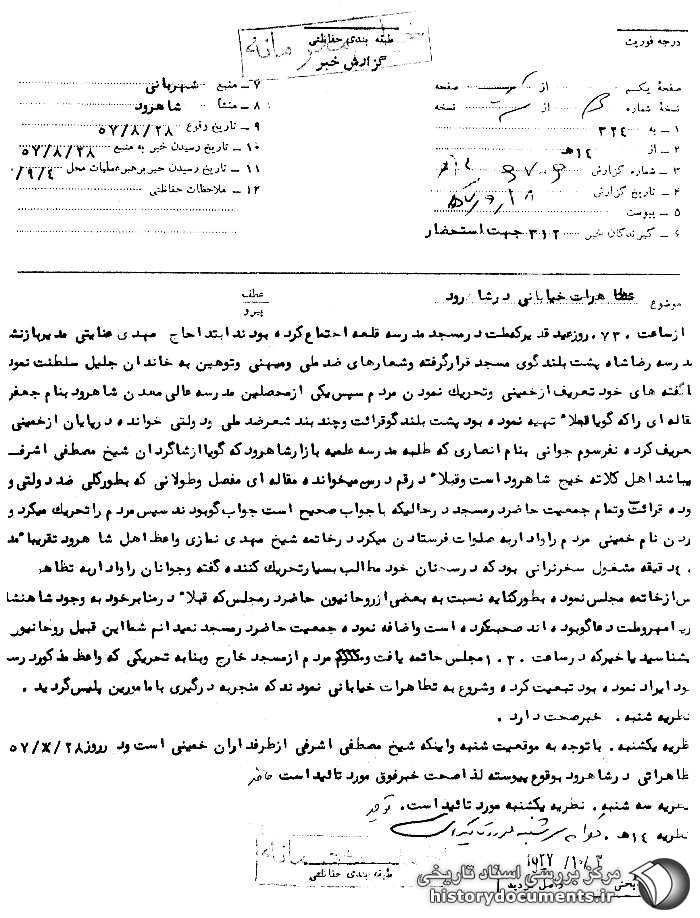 درجه فوریت
طبقه بندی حفاظتی
گزارش خبر
صفحهٔ یکم از صفحه
نسخهٔ شماره از نسخه
۱ ـ به ۳۲۴
۲ ـ از ۱۴هـ
۳ ـ شماره گزارش
۴ ـ تاریخ گزارش
۵ ـ پیوست
۶ ـ گیرندگان خبر ۳۱۲ جهت استحضار
۷ ـ منبع شهربانی
۸ ـ منشأ شاهرود
۹ ـ تاریخ وقوع ۵۷/۸/۲۸
۱۰ ـ تاریخ رسیدن خبر به منبع ۵۷/۸/۲۸
۱۱ ـ تاریخ رسیدن خبر برهبر عملیات محل ۹/۴/
۱۲ ـ ملاحظات حفاظتی
موضوع تظاهرات خیابانی در شاهرود
عطف
پیرو
از ساعت ۷۳۰ روز عید قدیر که ملت در مسجد مدرسه قلعه اجتماع کرده بودند ابتدا حاج مهدی عنایتی مدیر بازنش
مدرسه رضا شاه پشت بلند گوی مسجد قرار گرفته و شعارهای ضد ملی و میهنی و توهین به خاندان جلیل سلطنت نمود
گفته های خود تعریف از خمینی و تحریك نمودن مردم سپس یکی از محصلین مدرسه عالی معدن شاهرود بنام جعفر
مقاله ای را که گویا قبلا" تهیه نموده بود پشت بلند گو قرائت و چند بند شعر ضد ملی و دولتی خوانده در پایان از خمینی
تعریف کرده نفر سوم جوانی بنام انصاری که طلبه مدرسه علمیه بازار شاهرود که گویا از شاگردان شیخ مصطفی اشرف
میباشد اهل کلاته خیج شاهرود است و قبلا" در قم درس میخوانده مقاله ای مفصل و طولانی که بطور کلی ضد دولتی و
وده قرائت و تمام جمعیت حاضر در مسجد در حالیکه با جواب صحیح است جواب گو بودند سپس مردم را تحریك میکرد و
ردن نام خمینی مردم را وادار به صلوات فرستادن میکرد در خاتمه شیخ مهدی نمازی واعظ اهل شاهرود تقریبا" مد
۴۰ دقیقه مشغول سخنرانی بود که در سخنان خود مطالب بسیار تحریك کننده گفته و جوانان را وادار به تظاهر
س از خاتمه مجلس نموده بطور کنایه نسبت به بعضی از روحانیون حاضر در مجلس که قبلا" در منابر خود به وجود شاهنشا
ریا مهر و ملت دعاگو بوده اند صحبت کرده است و اضافه نموده جمعیت حاضر در مسجد نمیدانم شما این قبیل روحانیون
یشناسید یا خیر که در ساعت ۱۰۳۰ مجلس خاتمه یافت و مردم از مسجد خارج و بنا به تحریکی که واعظ مذکور در س
ود ایراد نموده بود تبعیت کرده و شروع به تظاهرات خیابانی نمودند که منجر به درگیری با مامورین پلیس گردید .
نظریه شنبه . خبر صحت دارد .
نظریه یکشنبه . با توجه به موقعیت شنبه و اینکه شیخ مصطفی اشرفی از طرفداران خمینی است و در روز ۵۷/۸/۲۸
تظاهراتی در شاهرود بوقوع پیوسته لذا صحت خبر فوق مورد تائید است
نظریه سه شنبه . نظریه یکشنبه مورد تائید است .
نظریه ۱۴هـ .
طبقه بندی حفاظتی
مرکز بررسی اسناد تاریخی
historydocuments.ir